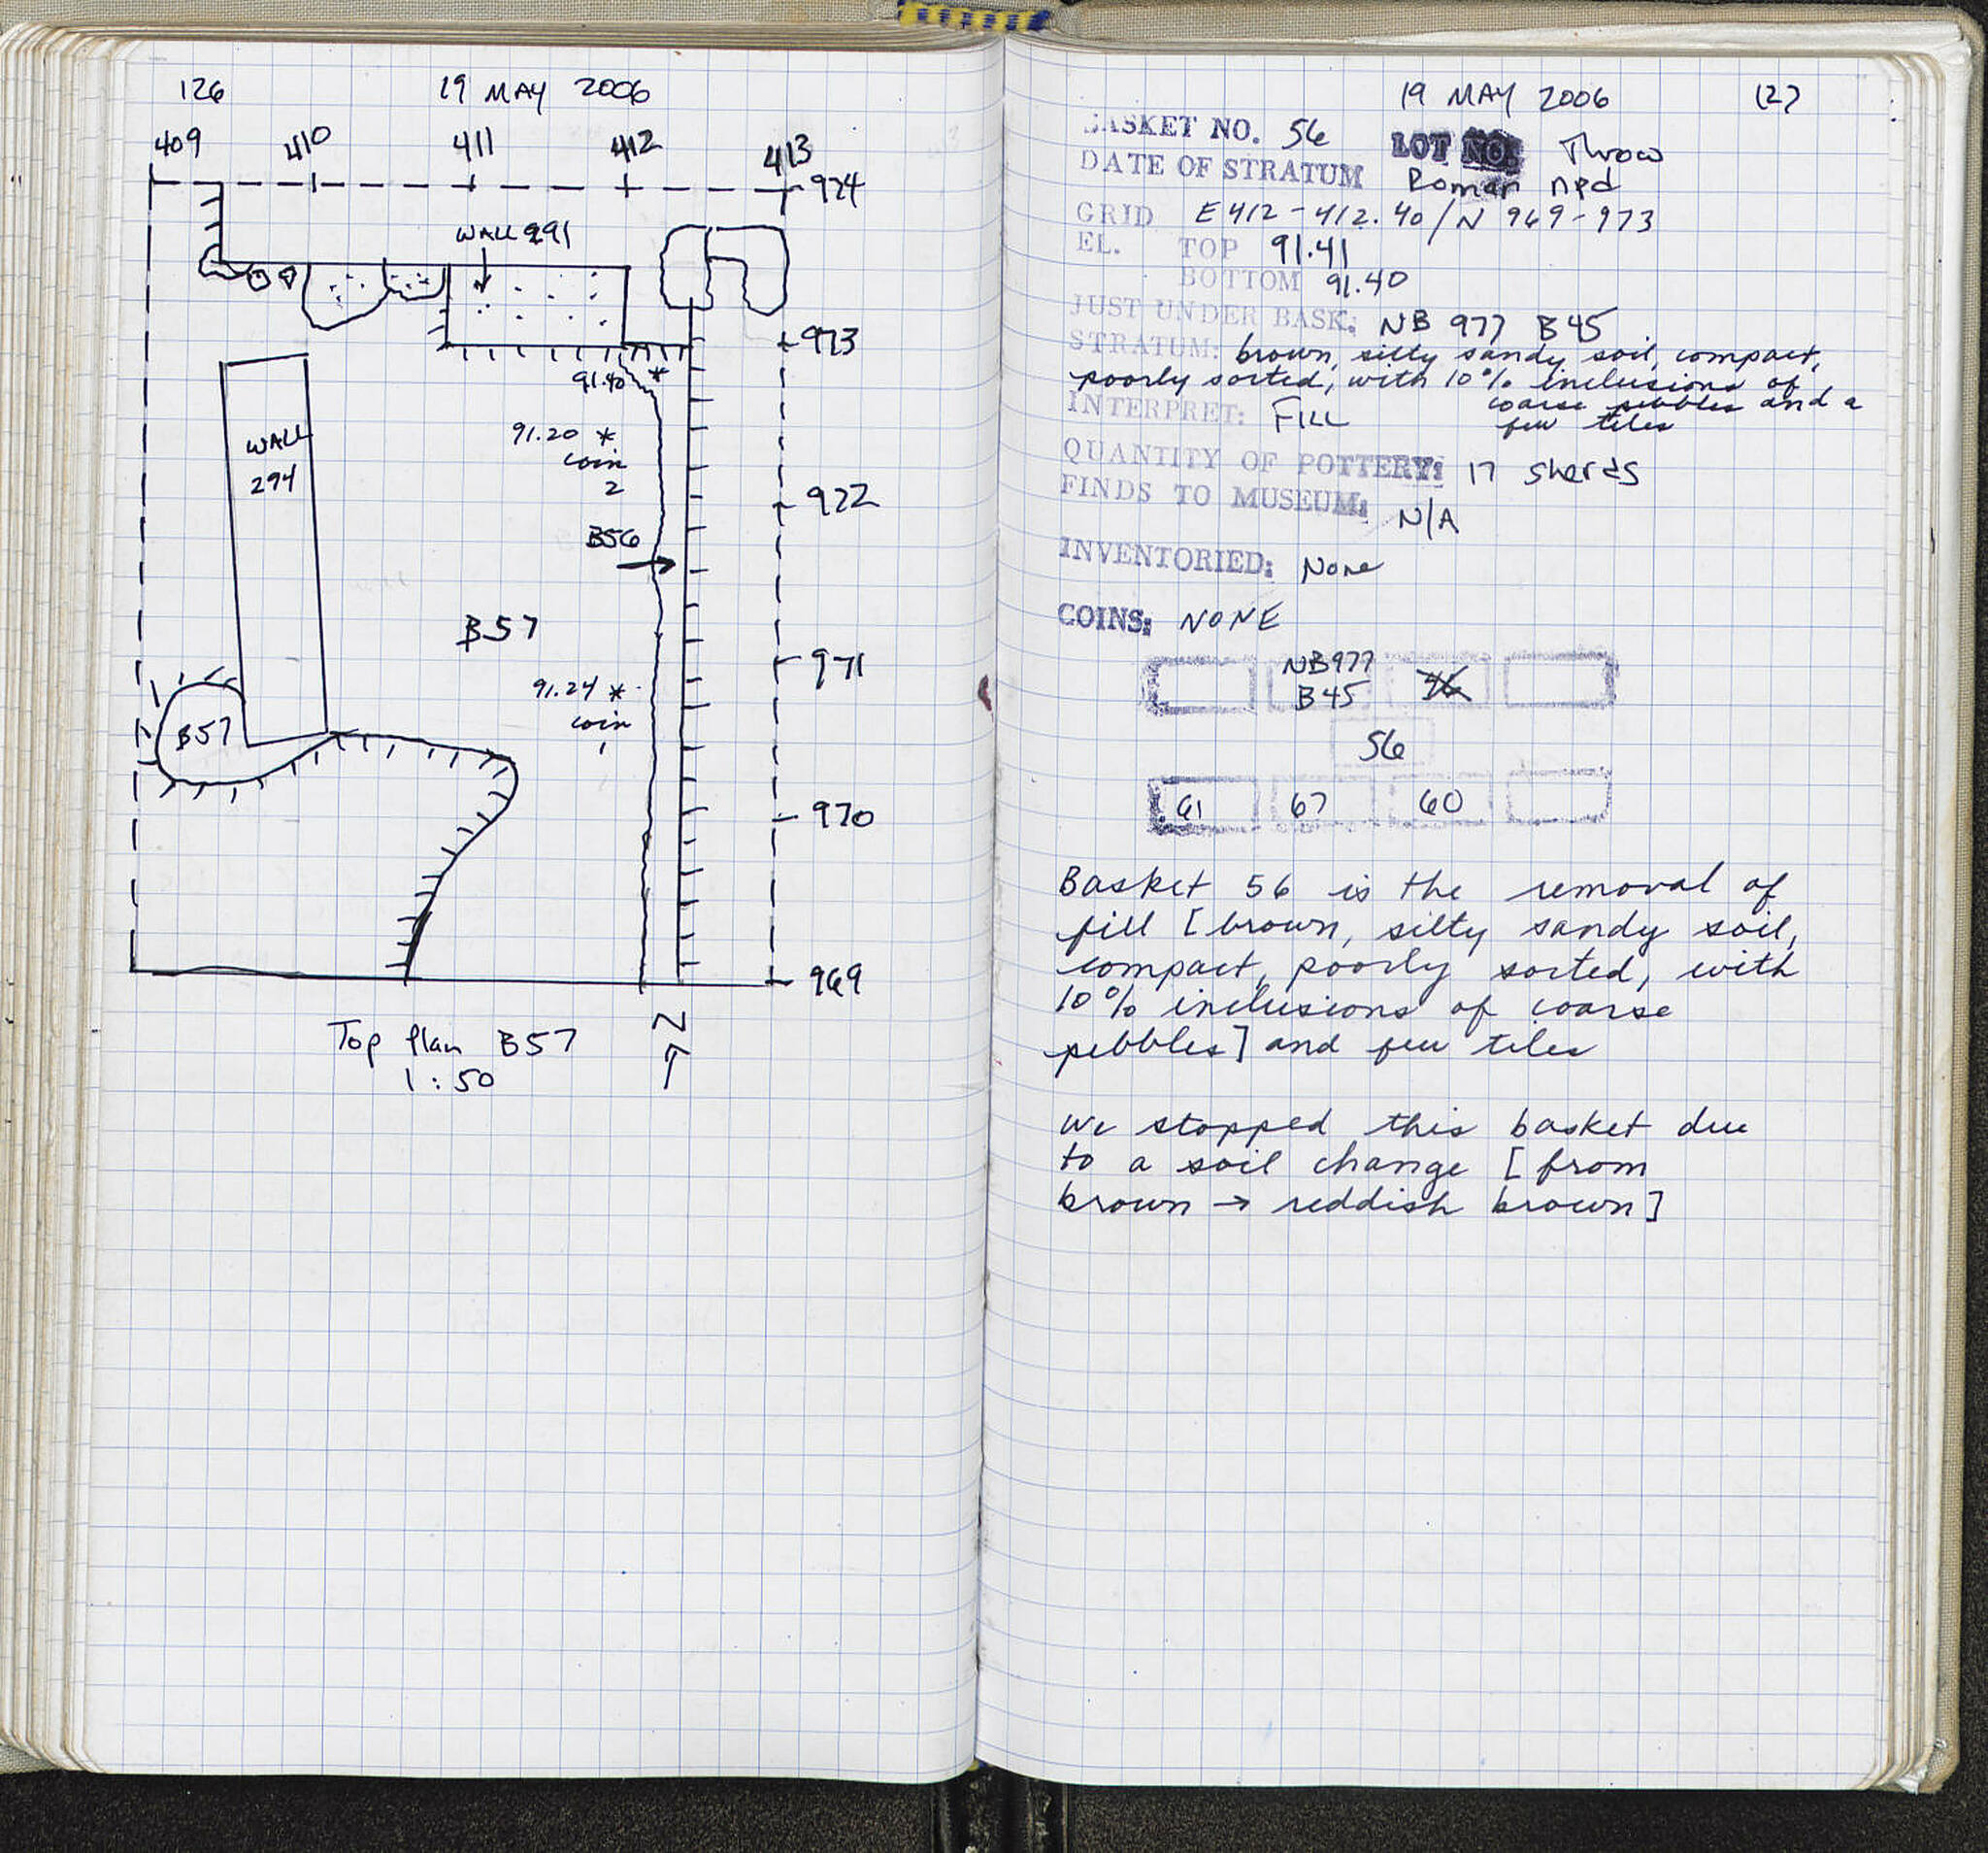 126
19 MAY 2006
409 410 411 412 413
974
WALL 291
973
91.40 *
WALL
294
91.20 *
coin
2
972
B56
B57
971
91.24 *
coin
1
B57
970
969
Top Plan B57
1:50
N
19 MAY 2006 127
BASKET NO. 56 LOT NO. Throw
DATE OF STRATUM Roman npd
GRID E412-412.40/N 969-973
EL. TOP 91.41
BOTTOM 91.40
JUST UNDER BASK: NB 977 B45
STRATUM: brown, silty sandy soil, compact,
poorly sorted, with 10% inclusions of
coarse pebbles and a
few tiles
INTERPRET: FILL
QUANTITY OF POTTERY: 17 sherds
FINDS TO MUSEUM: N/A
INVENTORIED: None
COINS: NONE
NB977
B45
56
61 67 60
Basket 56 is the removal of
fill [brown, silty sandy soil,
compact, poorly sorted, with
10% inclusions of coarse
pebbles] and few tiles
we stopped this basket due
to a soil change [from
brown → reddish brown]